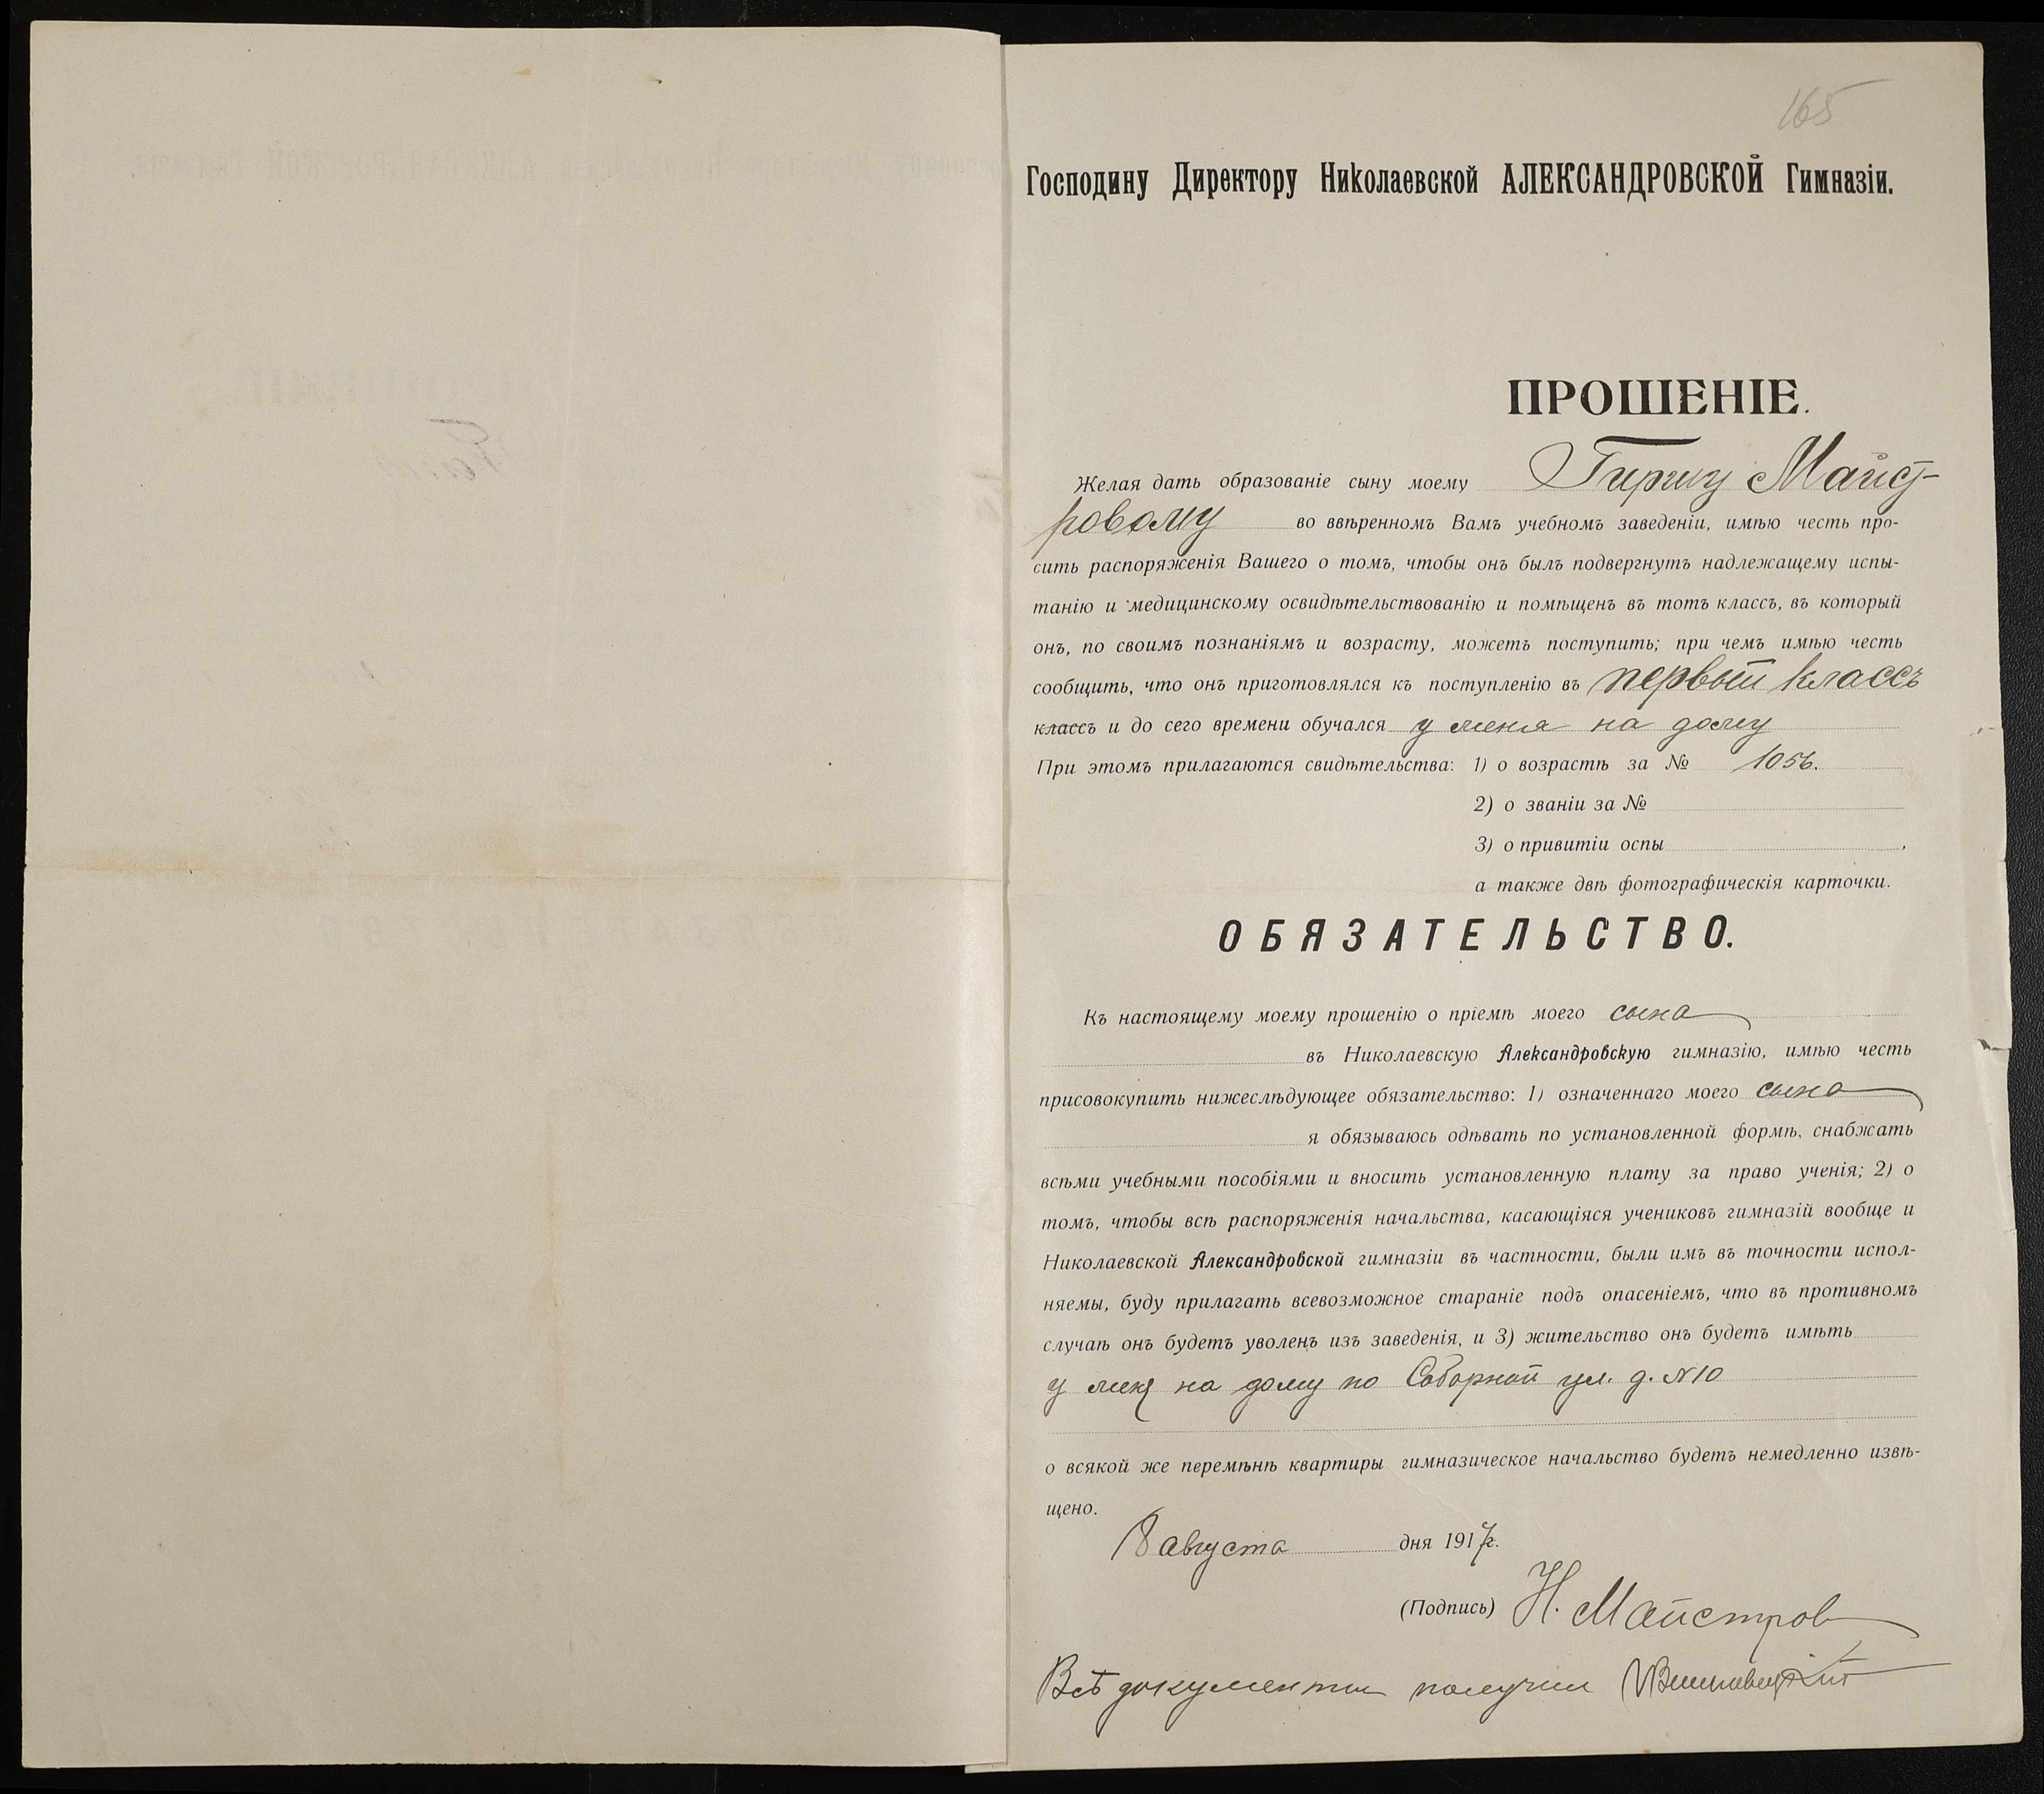 165
Господину Директору Николаевской АЛЕКСАНДРОВСКОЙ Гимназіи.
ПРОШЕНІЕ.
Желая дать образованіе сыну моему Гиршу Майст-
ровому во ввѣренномъ Вамъ учебномъ заведеніи, имѣю честь про-
сить распоряженія Вашего о томъ, чтобы онъ былъ подвергнутъ надлежащему испы-
танію и медицинскому освидѣтельствованію и помѣщенъ въ тотъ классъ, въ который
онъ, по своимъ познаніямъ и возрасту, можетъ поступить; при чемъ имѣю честь
сообщить, что онъ приготовлялся къ поступленію въ первый классъ
классъ и до сего времени обучался у меня на дому
При этомъ прилагаются свидѣтельства: 1) о возрастѣ за № 1056.
2) о званіи за №
3) о привитіи оспы ,
а также двѣ фотографическія карточки.
ОБЯЗАТЕЛЬСТВО.
Къ настоящему моему прошенію о пріемѣ моего сына
въ Николаевскую Александровскую гимназію, имѣю честь
присовокупить нижеслѣдующее обязательство: 1) означеннаго моего сына
я обязываюсь одѣвать по установленной формѣ, снабжать
всѣми учебными пособіями и вносить установленную плату за право ученія; 2) о
томъ, чтобы всѣ распоряженія начальства, касающіяся учениковъ гимназій вообще и
Николаевской Александровской гимназіи въ частности, были имъ въ точности испол-
няемы, буду прилагать всевозможное стараніе подъ опасеніемъ, что въ противномъ
случаѣ онъ будетъ уволенъ изъ заведенія, и 3) жительство онъ будетъ имѣть
у меня на дому по Соборной ул. д. №10
о всякой же перемѣнѣ квартиры гимназическое начальство будетъ немедленно извѣ-
щено.
8 августа дня 1917г.
(Подпись) Н. Майстров
Всѣ документы получил